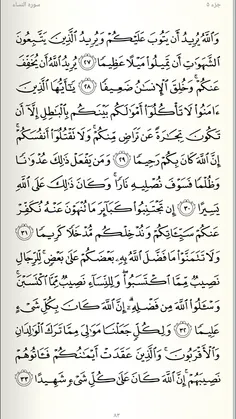 جزء ٥ سورة النساء
وَاللَّهُ يُرِيدُ أَن يَتُوبَ عَلَيْكُمْ وَيُرِيدُ الَّذِينَ يَتَّبِعُونَ
الشَّهَوَاتِ أَن تَمِيلُوا مَيْلًا عَظِيمًا ٢٧ يُرِيدُ اللَّهُ أَن يُخَفِّفَ
عَنكُمْ ۚ وَخُلِقَ الْإِنسَٰنُ ضَعِيفًا ٢٨ يَٰٓأَيُّهَا الَّذِينَ
ءَامَنُوا لَا تَأْكُلُوٓا أَمْوَٰلَكُم بَيْنَكُم بِالْبَٰطِلِ إِلَّآ أَن
تَكُونَ تِجَٰرَةً عَن تَرَاضٍ مِّنكُمْ ۚ وَلَا تَقْتُلُوٓا أَنفُسَكُمْ ۚ
إِنَّ اللَّهَ كَانَ بِكُمْ رَحِيمًا ٢٩ وَمَن يَفْعَلْ ذَٰلِكَ عُدْوَٰنًا
وَظُلْمًا فَسَوْفَ نُصْلِيهِ نَارًا ۚ وَكَانَ ذَٰلِكَ عَلَى اللَّهِ
يَسِيرًا ٣٠ إِن تَجْتَنِبُوا كَبَآئِرَ مَا تُنْهَوْنَ عَنْهُ نُكَفِّرْ
عَنكُمْ سَيِّـَٔاتِكُمْ وَنُدْخِلْكُم مُّدْخَلًا كَرِيمًا ٣١
وَلَا تَتَمَنَّوْا مَا فَضَّلَ اللَّهُ بِهِۦ بَعْضَكُمْ عَلَىٰ بَعْضٍ ۚ لِّلرِّجَالِ
نَصِيبٌ مِّمَّا اكْتَسَبُوا ۖ وَلِلنِّسَآءِ نَصِيبٌ مِّمَّا اكْتَسَبْنَ ۚ
وَسْـَٔلُوا اللَّهَ مِن فَضْلِهِۦٓ ۗ إِنَّ اللَّهَ كَانَ بِكُلِّ شَىْءٍ
عَلِيمًا ٣٢ وَلِكُلٍّ جَعَلْنَا مَوَٰلِىَ مِمَّا تَرَكَ الْوَٰلِدَانِ
وَالْأَقْرَبُونَ ۚ وَالَّذِينَ عَقَدَتْ أَيْمَٰنُكُمْ فَـَٔاتُوهُمْ
نَصِيبَهُمْ ۚ إِنَّ اللَّهَ كَانَ عَلَىٰ كُلِّ شَىْءٍ شَهِيدًا ٣٣
٨٣